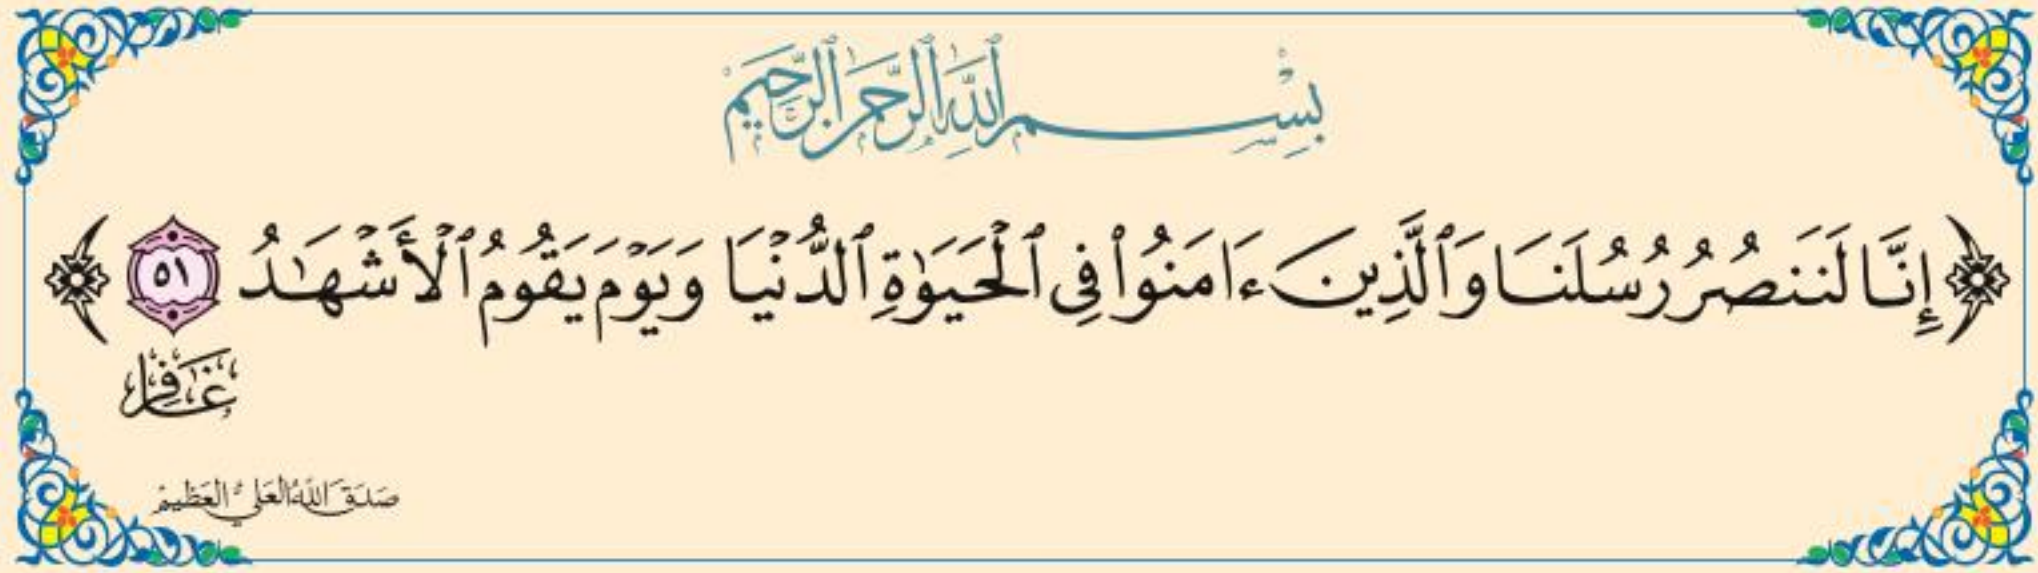 بِسْمِ ٱللَّهِ ٱلرَّحْمَٰنِ ٱلرَّحِيمِ
﴿إِنَّا لَنَنصُرُ رُسُلَنَا وَٱلَّذِينَ ءَامَنُوا۟ فِى ٱلْحَيَوٰةِ ٱلدُّنْيَا وَيَوْمَ يَقُومُ ٱلْأَشْهَـٰدُ ٥١﴾
غَافِر
صَدَقَ اللهُ العَلِيُّ العَظِيمْ